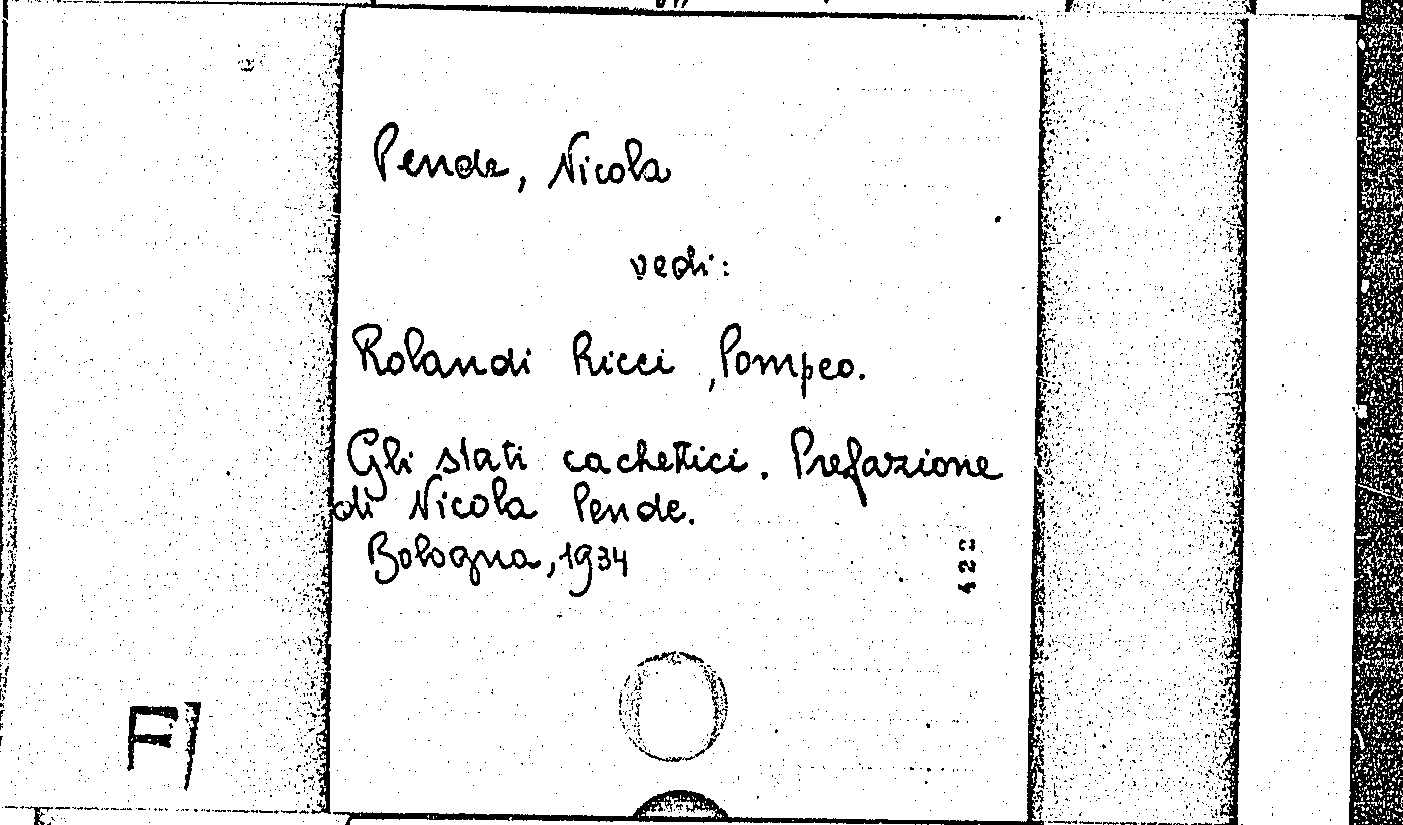 Pende, Nicola
vedi:
Rolandi Ricci, Pompeo.
Gli stati cachettici. Prefazione
di Nicola Pende.
Bologna, 1934
422